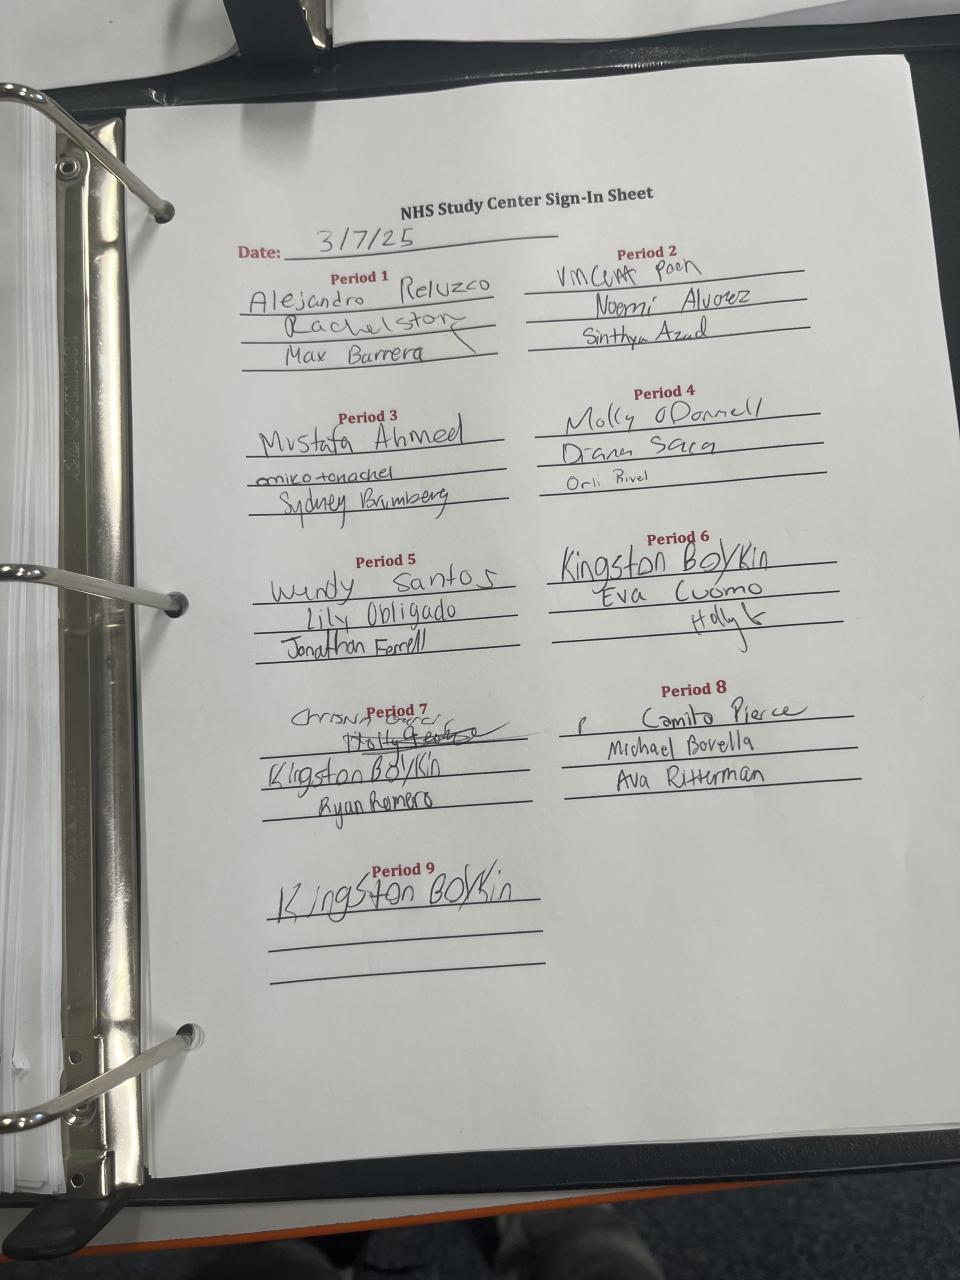 NHS Study Center Sign-In Sheet
Date: 3/7/25
Period 1
Alejandro Reluzco
Rachel Ston
Max Barrera
Period 2
Vincent Poon
Noemi Alvarez
Sinthya Azad
Period 3
Mustafa Ahmed
amiko tonachel
Sydney Brumberg
Period 4
Molly O'Donnell
Diana Saca
Orli Rivel
Period 5
Wendy Santos
Lily Obligado
Jonathan Ferrell
Period 6
Kingston Boykin
Eva Cuomo
Holly
Period 7
Holly
Kingston Boykin
Ryan Romero
Period 8
Camito Pierce
Michael Bovella
Ava Ritterman
Period 9
Kingston Boykin